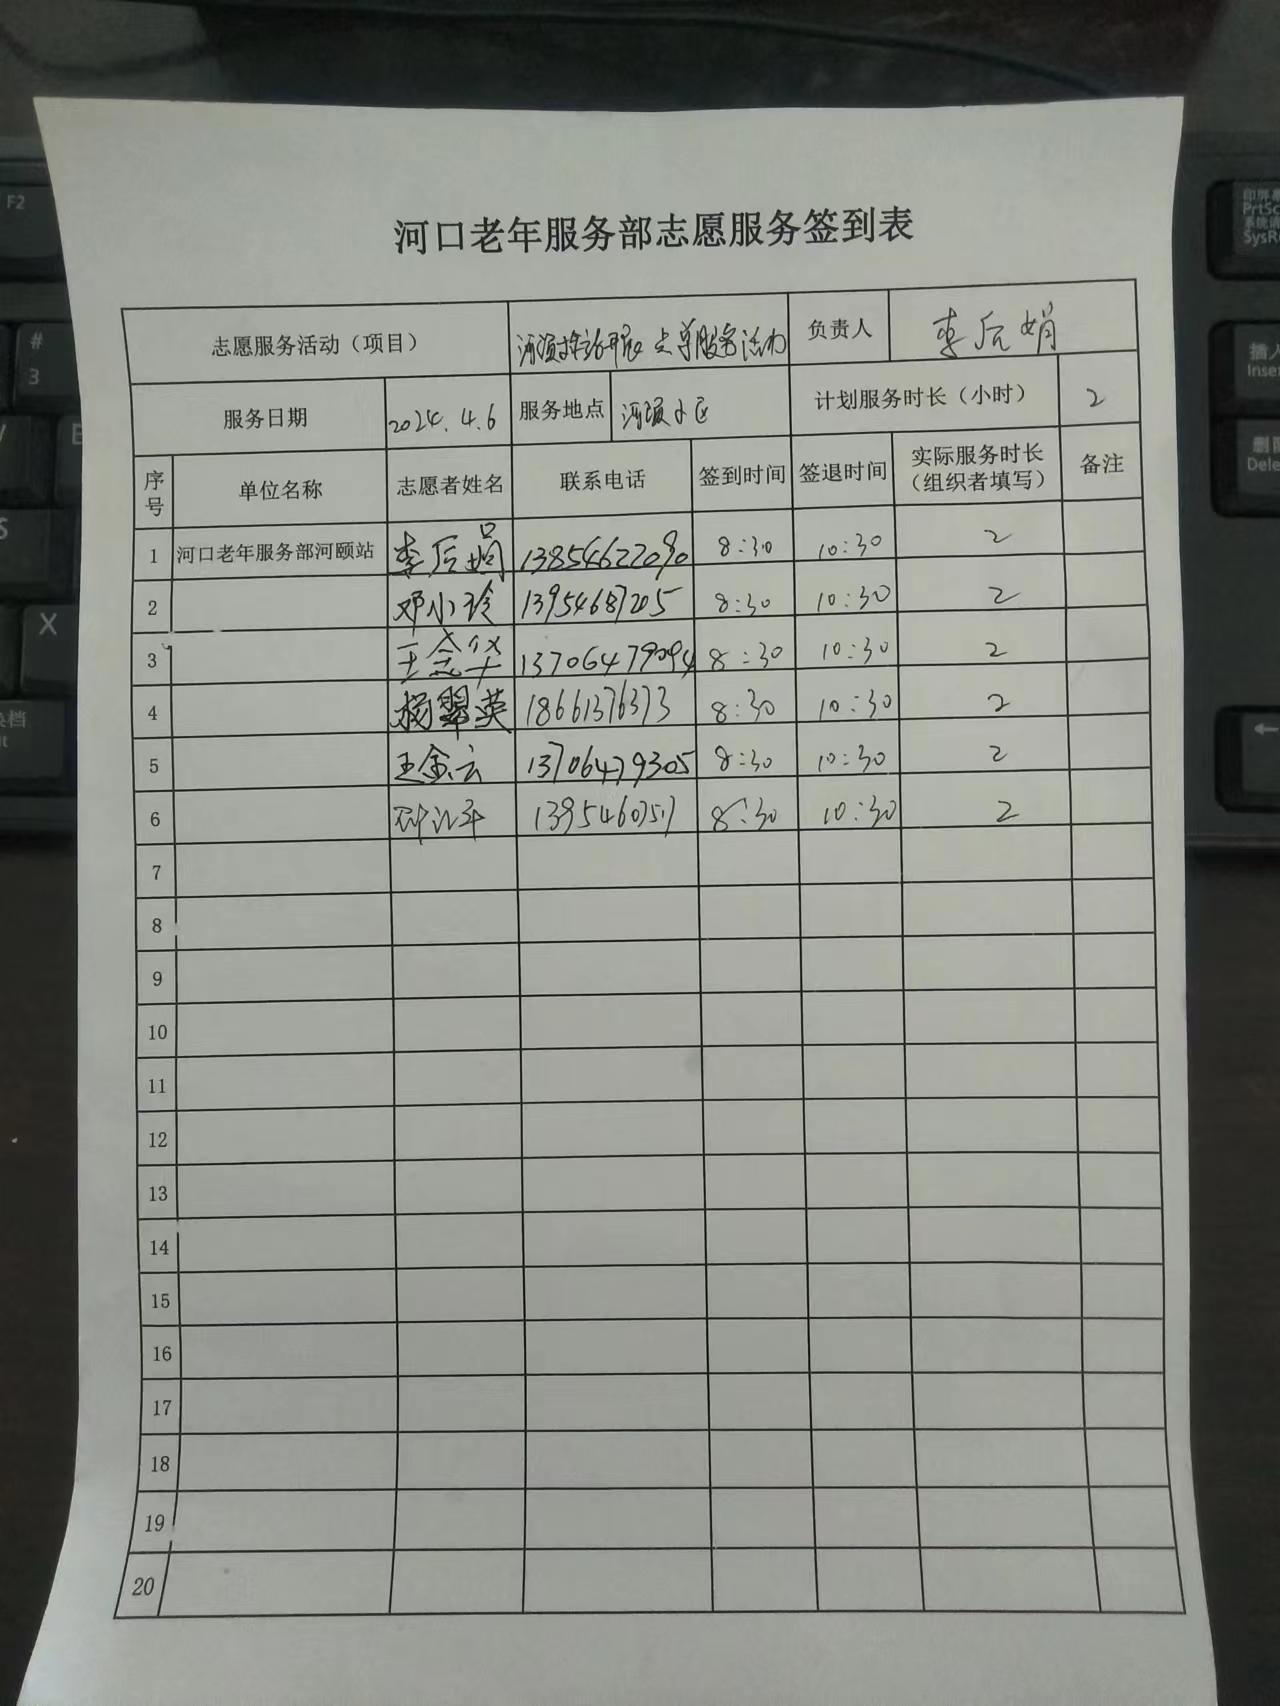 河口老年服务部志愿服务签到表
志愿服务活动（项目） 负责人 李后娟
服务日期 2024.4.6 服务地点 计划服务时长（小时） 2
序号 单位名称 志愿者姓名 联系电话 签到时间 签退时间 实际服务时长（组织者填写） 备注
1 河口老年服务部河颐站 李后娟 13854622090 8:30 10:30 2
2 邓小玲 13954687205 8:30 10:30 2
3 王念华 13706479094 8:30 10:30 2
4 杨翠英 18661376373 8:30 10:30 2
5 王金云 13706479305 8:30 10:30 2
6 8:30 10:30 2
7
8
9
10
11
12
13
14
15
16
17
18
19
20
F2
#
3
X
PrtSc
SysR
插入
Inser
删除
Dele